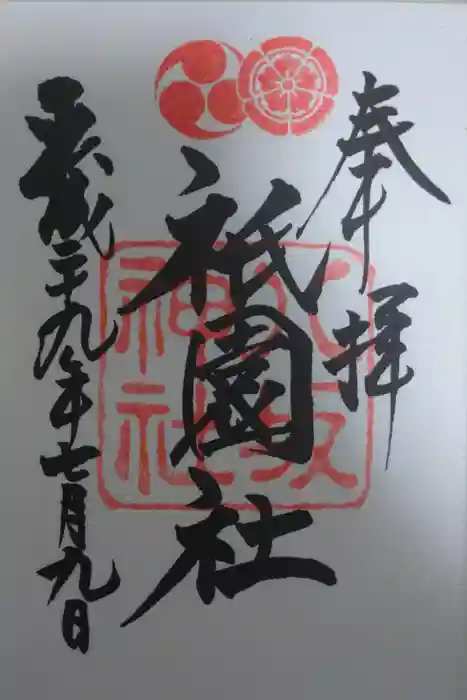 奉拝
八坂神社
祇園社
平成二十九年七月九日